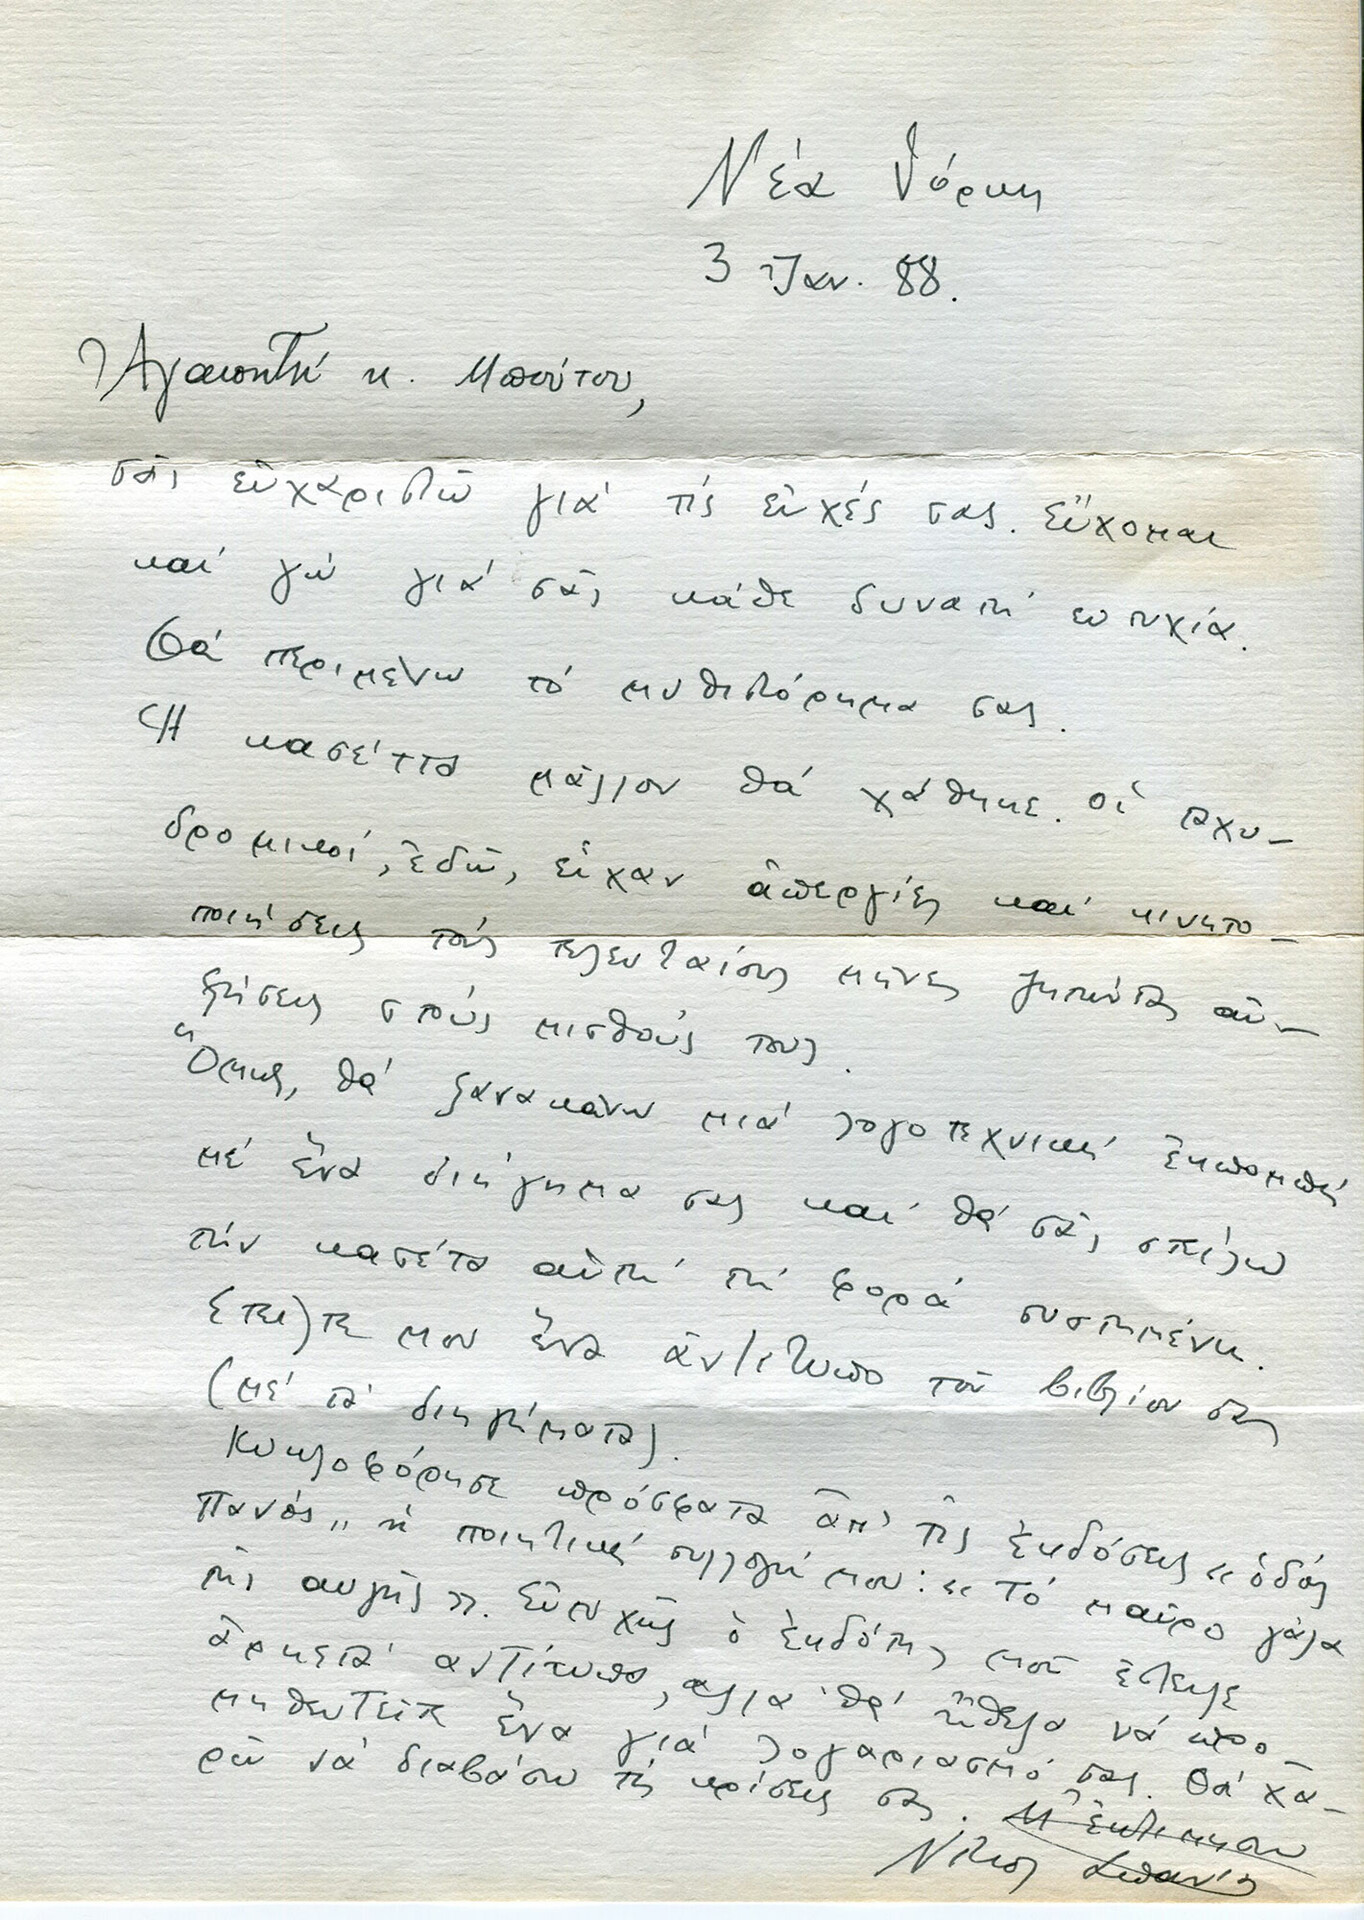 Νέα Ὑόρκη
3 Ἰαν. 88.
Ἀγαπητή κ. Μπούτου,
σᾶς εὐχαριστῶ γιά τίς εὐχές σας. Εὔχομαι
καί γώ γιά σᾶς κάθε δυνατή ευτυχία.
Θά περιμένω τό μυθιστόρημα σας.
Ἡ κασέττα μᾶλλον θά χάθηκε. Οἱ ταχυ-
δρομικοί, ἐδῶ, εἶχαν ἀπεργίες καί κινητο-
ποιήσεις τούς τελευταίους μῆνες ζητώντας αὐ-
ξήσεις στούς μισθούς τους.
Ὅμως, θά ξανακάνω μιά λογοτεχνική ἐκπομπή
μέ ἕνα διήγημα σας καί θά σᾶς στείλω
τήν κασέτα αὐτή τή φορά συστημένη.
Στείλτε μου ἕνα ἀντίτυπο τοῦ βιβλίου σας
(μέ τά διηγήματα).
Κυκλοφόρησε πρόσφατα ἀπ' τίς ἐκδόσεις «ὁδός
Πανός» ἡ ποιητική συλλογή μου: «Τό μαῦρο γάλα
τῆς αυγῆς». Εὐτυχῶς ὁ ἐκδότης μοῦ ἔστειλε
ἀρκετά αντίτυπα, αλλα θά ἤθελα νά προ-
μηθευτεῖτε ἕνα γιά λογαριασμό σας. Θά χα-
ρῶ νά διαβάσω τίς κρίσεις σας. Μ' ἐκτίμηση
Νίκος Σπάνιας